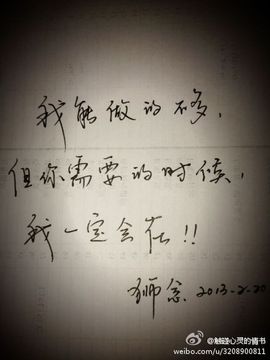 我能做的不多,
但你需要的时候,
我一定会在!!
狮念 2013-2-20
@触碰心灵的情书
weibo.com/u/3208900811